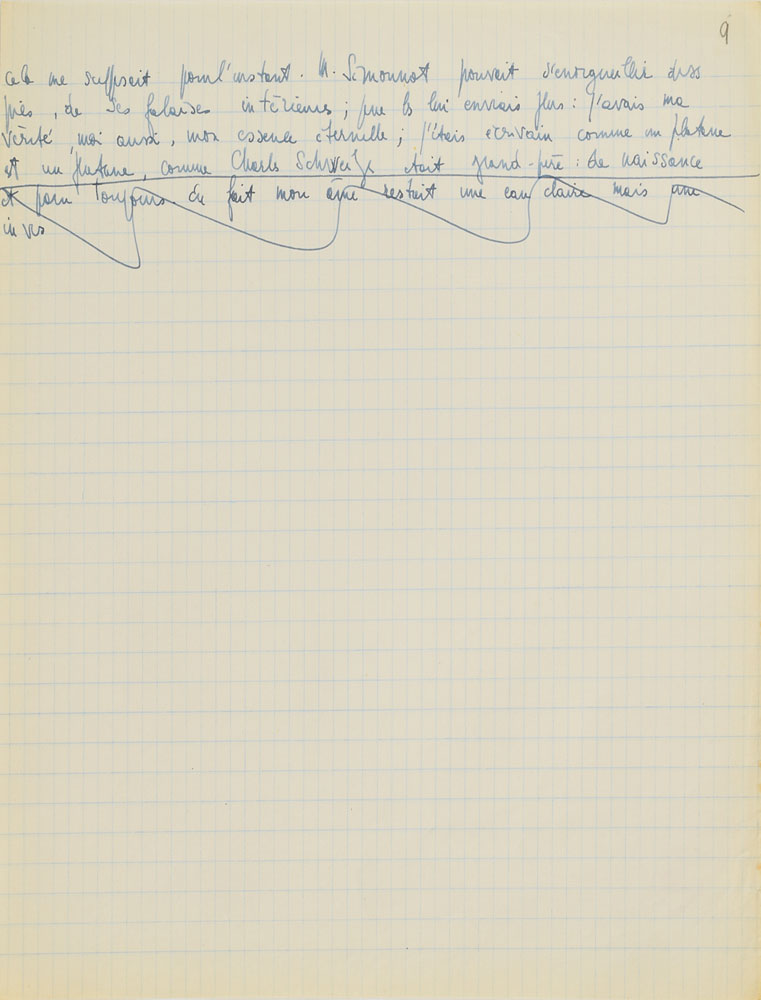 9
cela me suffisait pour l'instant. M. Simonnot pouvait s'enorgueillir
, de ses falaises intérieures ; je les lui enviais plus : j'avais ma
vérité, moi aussi, mon essence éternelle ; j'étais écrivain comme un platane
est un platane, comme Charles Schweitzer était grand-père : de naissance
et pour toujours. De fait mon âme restait une eau claire mais une